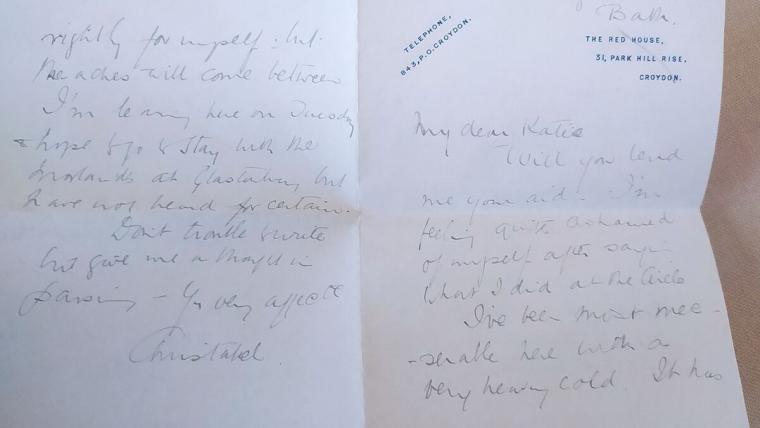 Bath.
TELEPHONE,
843, P.O. CROYDON.
THE RED HOUSE,
31, PARK HILL RISE,
CROYDON.
My dear Katie
Will you lend
me your aid - I'm
feeling quite ashamed
of myself after saying
what I did at the Circle
I've been most mee-
-serable here with a
very heavy cold. It has
rightly for myself : but
the aches will come between
I'm leaving here on Tuesday
& hope to go & stay with the
Morlands at Glastonbury but
have not heard for certain.
Don't trouble to write
but give me a thought in
passing — Yr very affecte
Christabel.